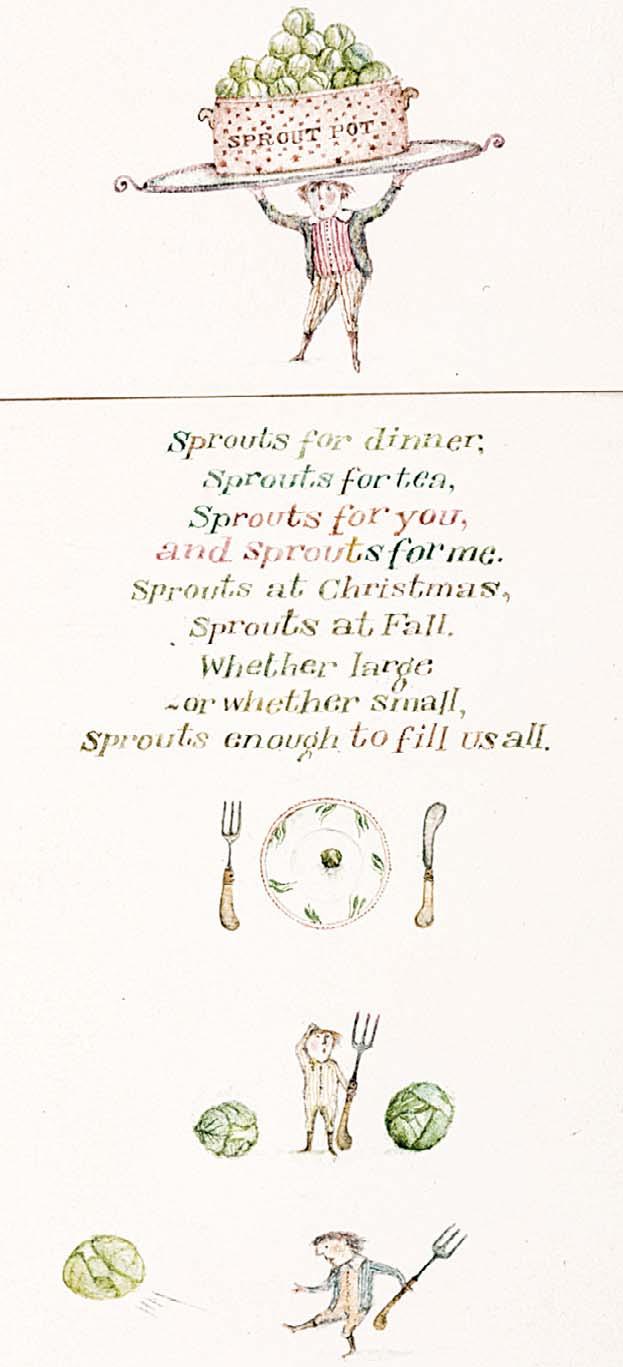 SPROUT POT
Sprouts for dinner,
Sprouts for tea,
Sprouts for you,
and Sprouts for me.
Sprouts at Christmas,
Sprouts at Fall.
Whether large
~or whether small,
Sprouts enough to fill us all.